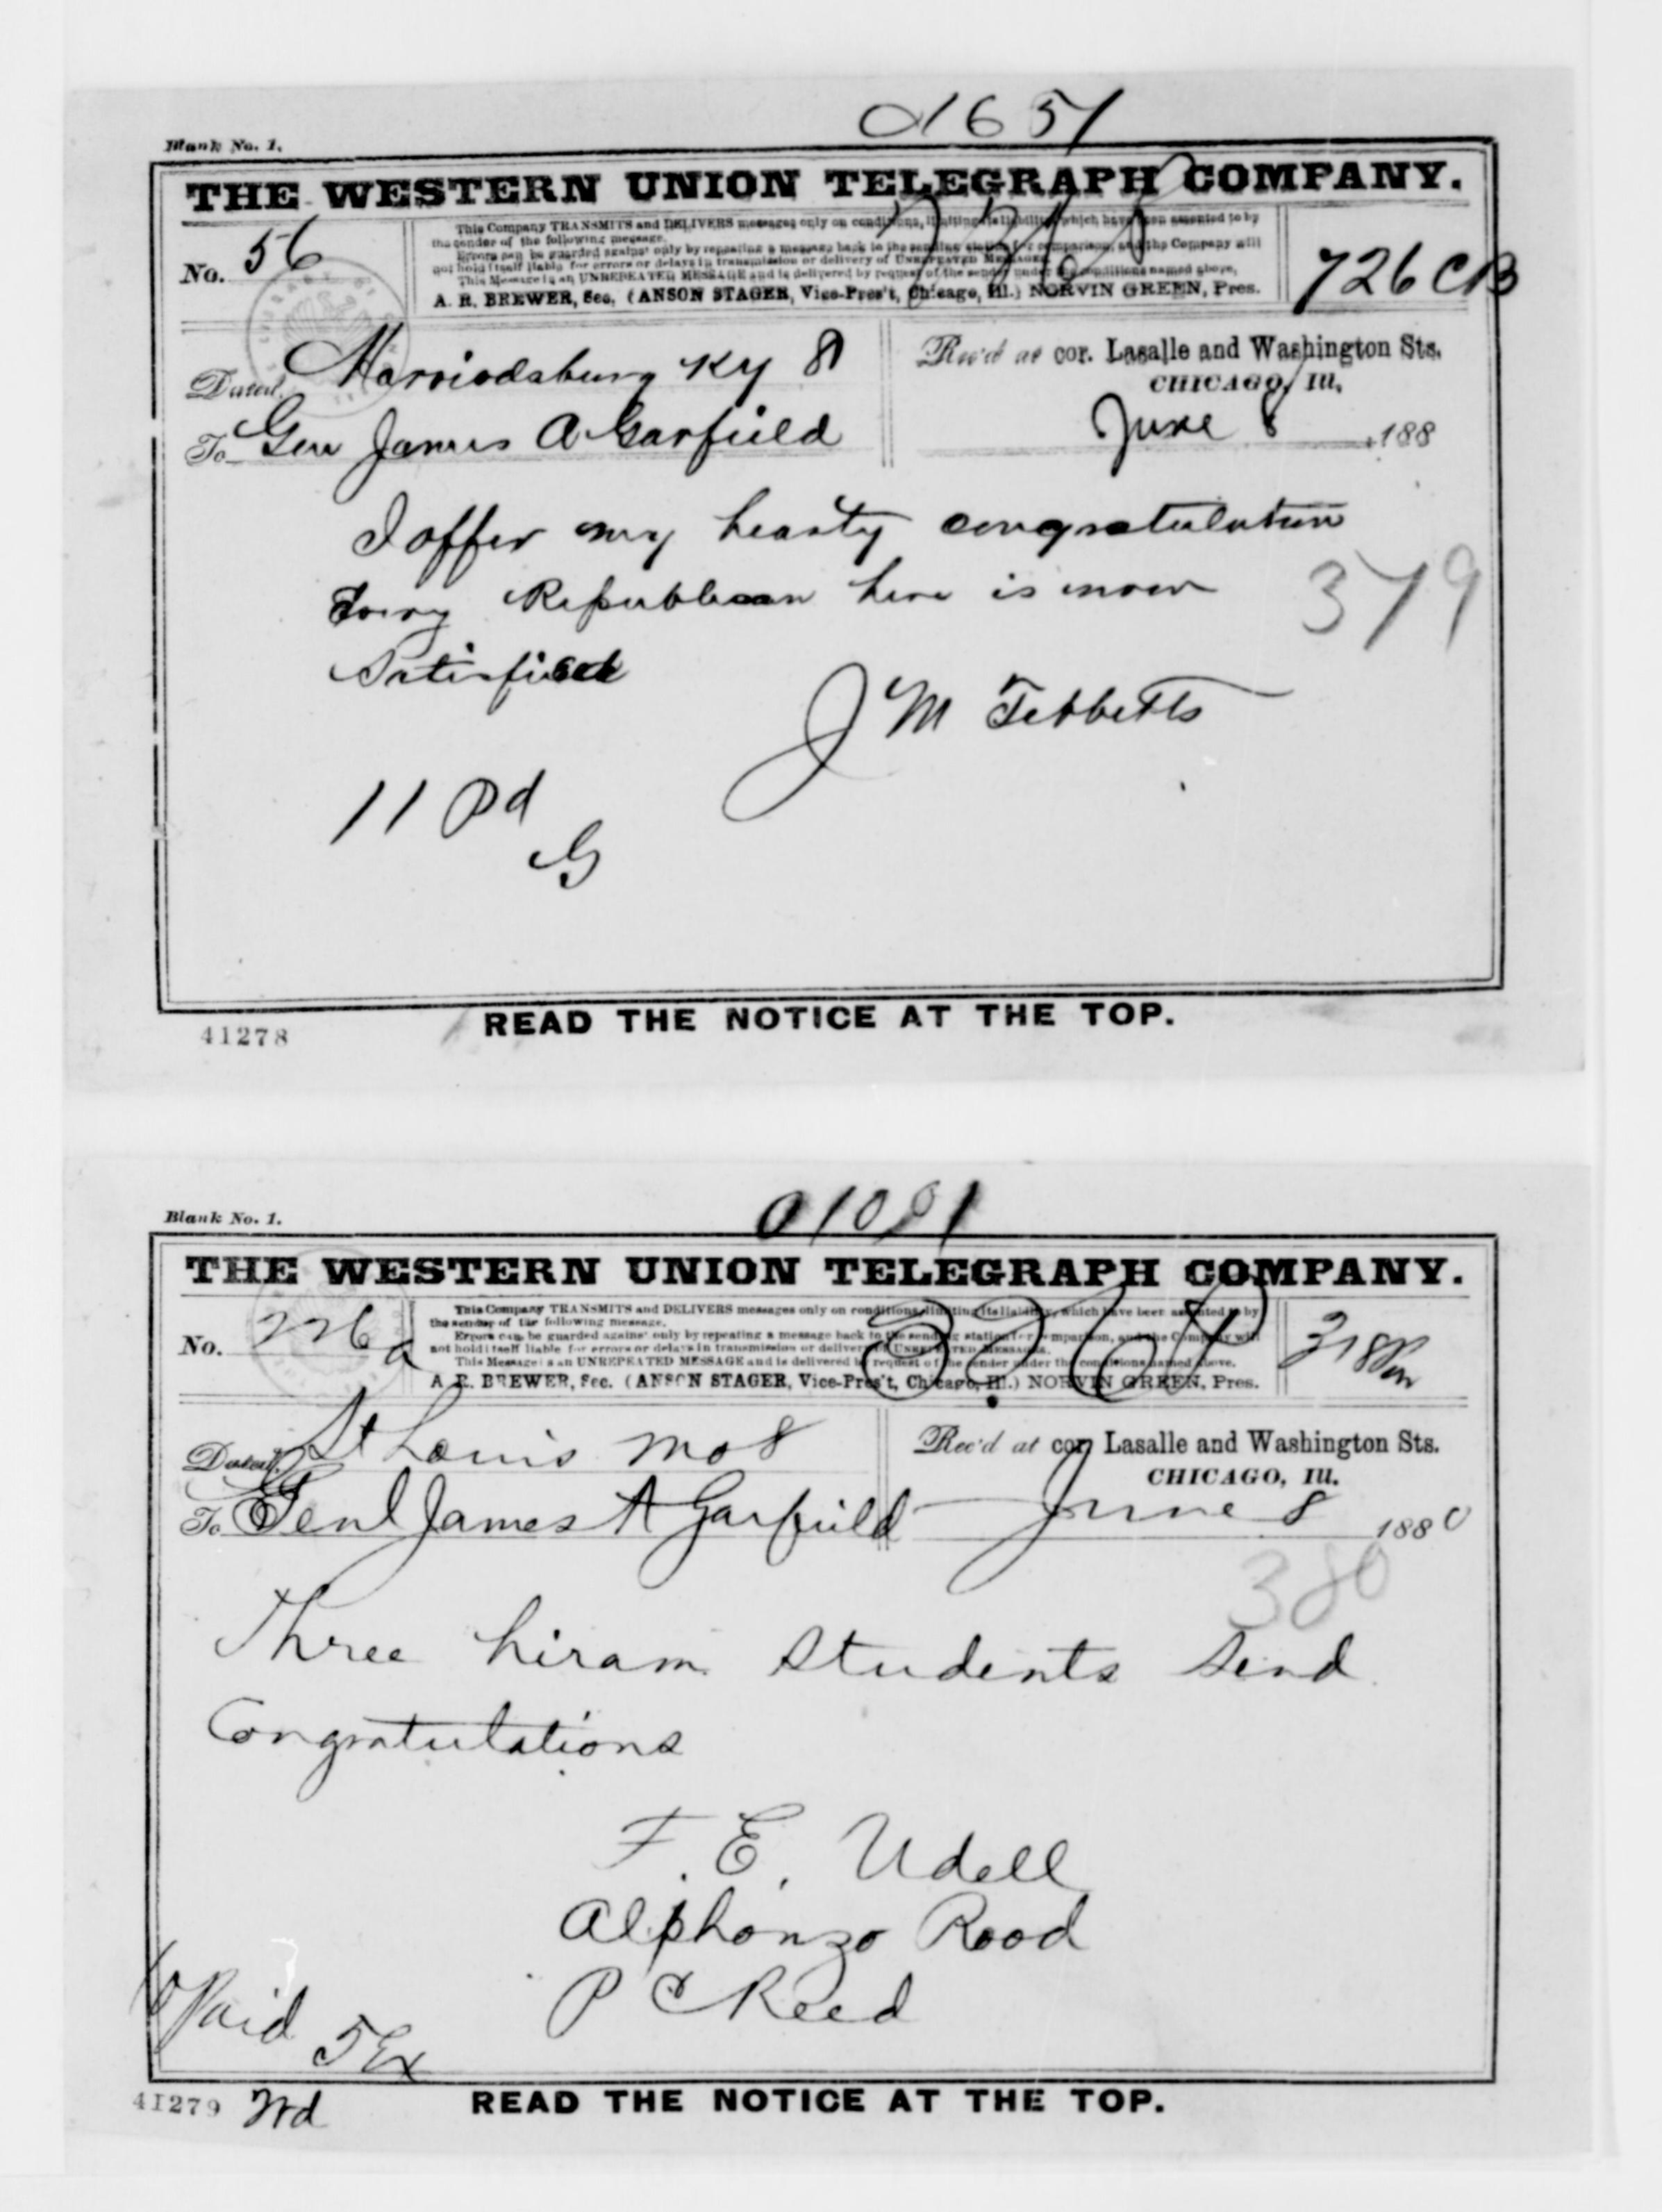 01651
Blank No. 1.
THE WESTERN UNION TELEGRAPH COMPANY.
No. 56
This Company TRANSMITS and DELIVERS messages only on conditions, limiting its liability, which have been assented to by
the sender of the following message.
Errors can be guarded against only by repeating a message back to the sending station for comparison, and the Company will
not hold itself liable for errors or delays in transmission or delivery of UNREPEATED MESSAGES.
This Message is an UNREPEATED MESSAGE and is delivered by request of the sender under the conditions named above.
A. R. BREWER, Sec. (ANSON STAGER, Vice-Pres't, Chicago, Ill.) NORVIN GREEN, Pres.
726 CB
Dated Harrodsburg Ky 8
Rec'd at cor. Lasalle and Washington Sts.
CHICAGO, Ill.
To Gen James A Garfield
June 8 188
I offer my hearty congratulation
Every Republican here is now
Satisfied
379
J M Tebbetts
11 Pd
G
READ THE NOTICE AT THE TOP.
41278
Blank No. 1.
THE WESTERN UNION TELEGRAPH COMPANY.
No. 226 a
This Company TRANSMITS and DELIVERS messages only on conditions, limiting its liability, which have been assented to by
the sender of the following message.
Errors can be guarded against only by repeating a message back to the sending station for comparison, and the Company will
not hold itself liable for errors or delays in transmission or delivery of UNREPEATED MESSAGES.
This Message is an UNREPEATED MESSAGE and is delivered by request of the sender under the conditions named above.
A. R. BREWER, Sec. (ANSON STAGER, Vice-Pres't, Chicago, Ill.) NORVIN GREEN, Pres.
318 Pm
Dated St Louis Mo 8
Rec'd at cor Lasalle and Washington Sts.
CHICAGO, Ill.
To Genl James A Garfield
June 8 1880
380
Three hiram students send
Congratulations
F. E. Udell
Alphonzo Rood
P C Reed
Paid 5 Ex
41279
READ THE NOTICE AT THE TOP.